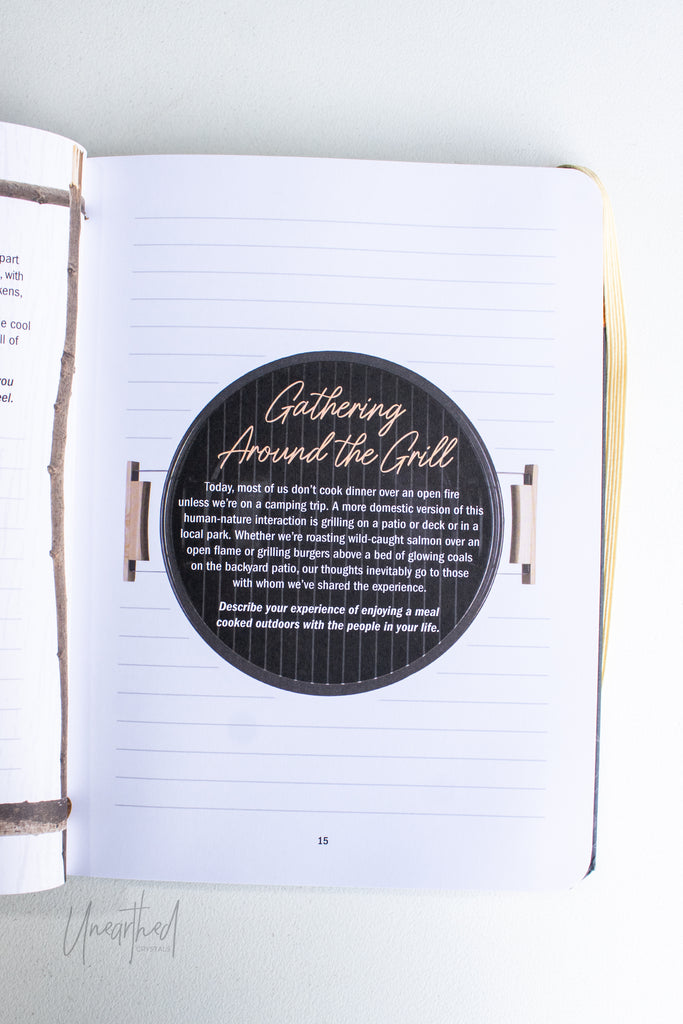 part
, with
kens,
e cool
ll of
you
eel.
Gathering
Around the Grill
Today, most of us don't cook dinner over an open fire
unless we're on a camping trip. A more domestic version of this
human-nature interaction is grilling on a patio or deck or in a
local park. Whether we're roasting wild-caught salmon over an
open flame or grilling burgers above a bed of glowing coals
on the backyard patio, our thoughts inevitably go to those
with whom we've shared the experience.
Describe your experience of enjoying a meal
cooked outdoors with the people in your life.
15
Unearthed
CRYSTALS